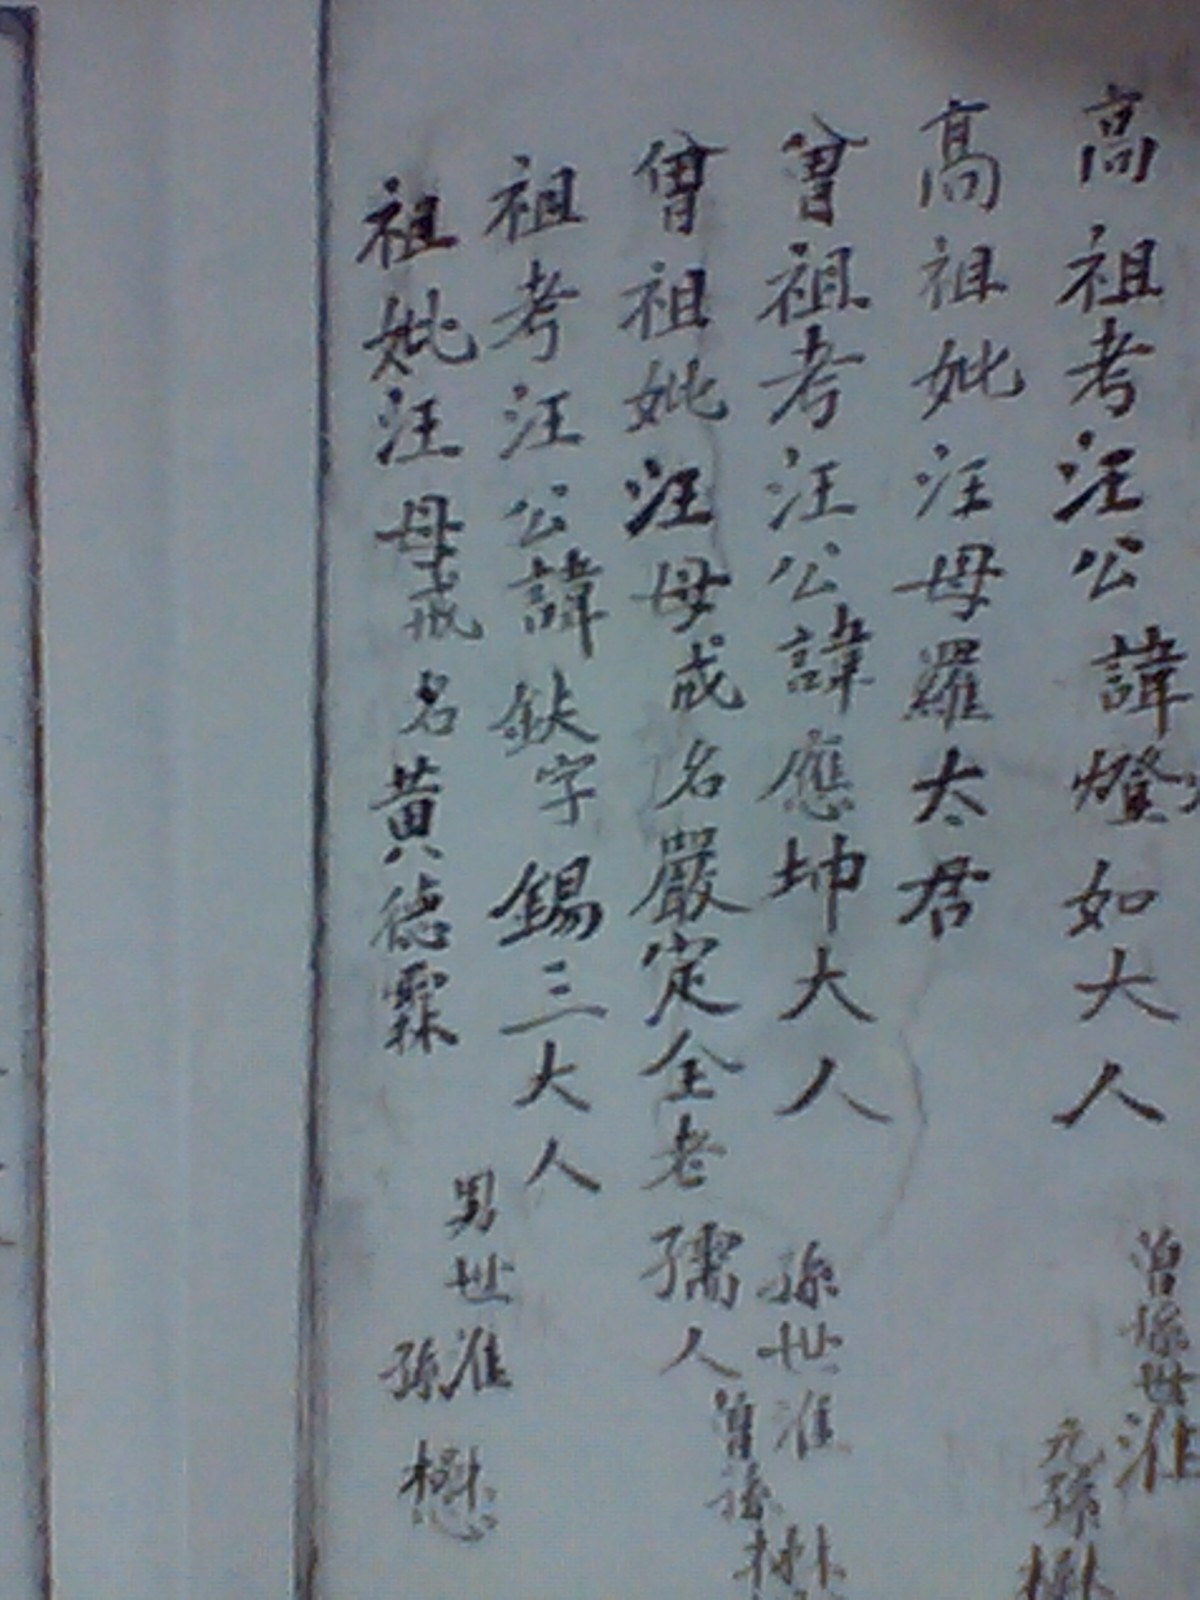 高祖考汪公諱燈如大人
曾孫世淮
元孫懋
高祖妣汪母羅太君
曾祖考汪公諱應坤大人
孫世淮
曾孫懋
曾祖妣汪母戒名嚴定全老孺人
祖考汪公諱鈇字錫三大人
男世淮
孫懋
祖妣汪母戒名黃德霖